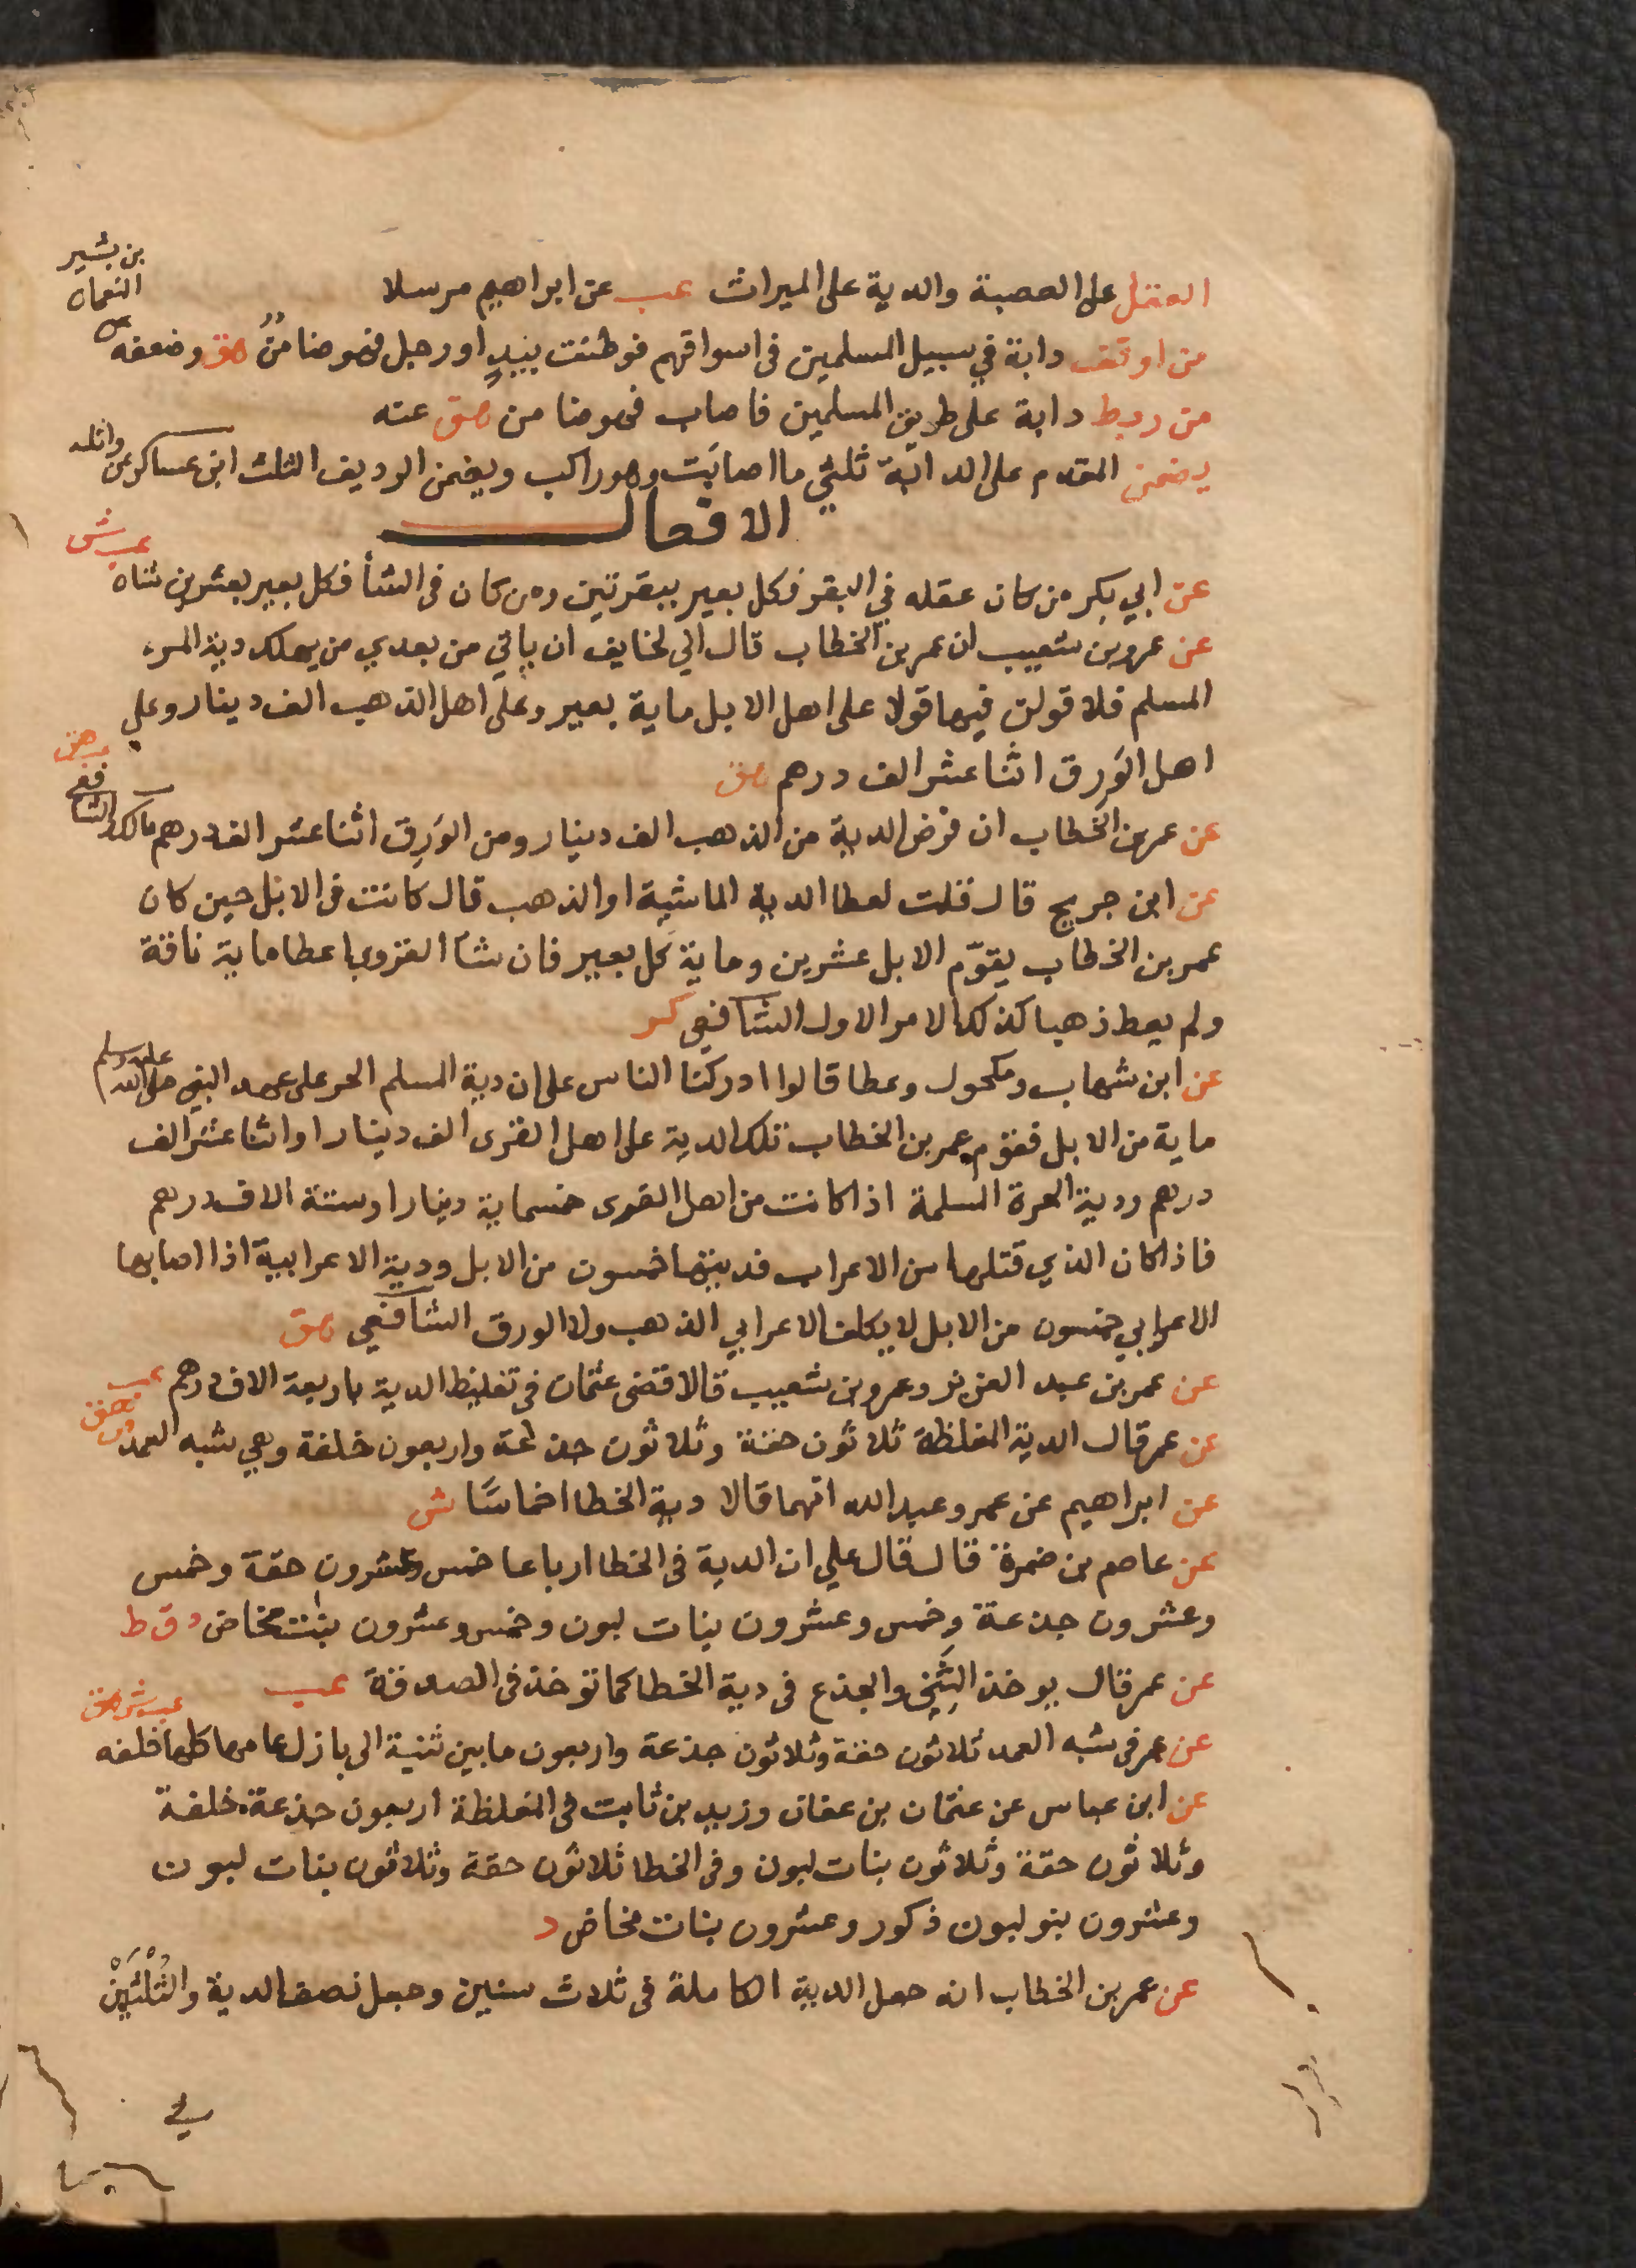 العقل على العصبة والدية على الميراث عب عن ابراهيم مرسلا
من اوقف دابة في سبيل المسلمين في اسواقهم فوطئت بيد او رجل فهو ضامن هق وضعفه عن
النعمان
بن بشير
من ربط دابة على طريق المسلمين فاصاب فهو ضامن هق عنه
يضمن المقدم على الدابة ثلثي ما اصابت وهو راكب ويضمن الرديف الثلث ابن عساكر عن واثله
الافعال
عن ابي بكر من كان عقله في البقر فكل بعير ببقرتين ومن كان في الشأ فكل بعير بعشرين شاه
عب ش
عن عمرو بن شعيب ان عمر بن الخطاب قال اني لخايف ان ياتي من بعدي من يهلك دية المرء
المسلم فلا قولن فيها قولا على اهل الابل ماية بعير وعلى اهل الذهب الف دينار وعلى
اهل الورق اثنا عشر الف درهم هق
عن عمر بن الخطاب ان فرض الدية من الذهب الف دينار ومن الورق اثنا عشر الف درهم مالك والشافعي
عب هق
عن ابن جريج قال قلت لعطا الدية الماشية او الذهب قال كانت في الابل حين كان
عمر بن الخطاب يقوّم الابل عشرين وماية كل بعير فان شآ القروي اعطا ماية ناقة
ولم يعط ذهبا كذلك الامر الاول الشافعي كر
عن ابن شهاب ومكحول وعطا قالوا ادركنا الناس على ان دية المسلم الحر على عهد النبي صلى الله عليه وسلم
ماية من الابل فقوم عمر بن الخطاب تلك الدية على اهل القرى الف دينار او اثنا عشر الف
درهم ودية الحرة المسلمة اذا كانت من اهل القرى خمسماية دينار او ستة الاف درهم
فاذا كان الذي قتلها من الاعراب فديتها خمسون من الابل ودية الاعرابية اذا اصابها
الاعرابي خمسون من الابل لا يكلف الاعرابي الذهب ولا الورق الشافعي هق
عن عمر بن عبد العزيز وعمرو بن شعيب قالا قضى عثمان في تغليظ الدية باربعة الاف درهم عب
عن عمر قال الدية المغلظة ثلاثون حقة وثلاثون جذعة واربعون خلفة وهي شبه العمد
عن ابراهيم عن عمر وعبد الله انهما قالا دية الخطا اخماسًا ش
عن عاصم بن ضمرة قال قال علي ان الدية في الخطا ارباعا خمس وعشرون حقة وخمس
وعشرون جذعة وخمس وعشرون بنات لبون وخمس وعشرون بنت مخاض د قط
عن عمر قال يوخذ الثني والجذع في دية الخطا كما توخذ في الصدقة عب
عن عمر في شبه العمد ثلاثون حقة وثلاثون جذعة واربعون ما بين ثنية الى بازل عامها كلها خلفه
عب ش هق
عن ابن عباس عن عثمان بن عفان وزيد بن ثابت في المغلظة اربعون جذعة خلفة
وثلاثون حقة وثلاثون بنات لبون وفي الخطا ثلاثون حقة وثلاثون بنات لبون
وعشرون بنو لبون ذكور وعشرون بنات مخاض د
عن عمر بن الخطاب انه جعل الدية الكاملة في ثلاث سنين وجعل نصف الدية والثُلْثَيْنْ
في